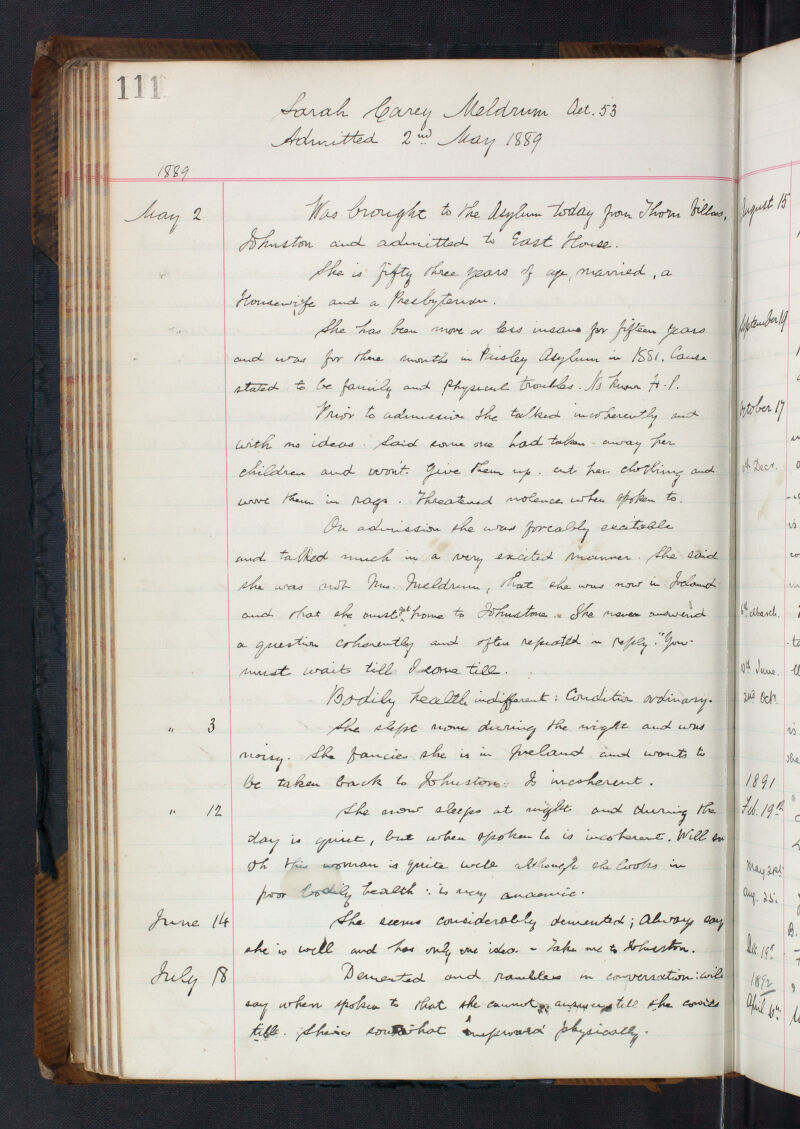 111
Sarah Carey Meldrum Aet. 53
Admitted 2nd May 1889
1889
May 2 Was brought to the Asylum today from Thorn Villas,
Johnston and admitted to East House.
She is fifty three years of age, married, a
Housewife and a Presbyterian.
She has been more or less insane for fifteen years
and was for three months in Paisley Asylum in 1881. Cause
stated to be family and physical troubles. No known H.P.
Prior to admission she talked incoherently and
with no ideas. Said some one had taken away her
children and won't give them up. cut her clothing and
wore them in rags. Threatened violence when spoken to.
On admission she was forcably excitable
and talked much in a very excited manner. She said
she was not Mrs. Meldrum, that she was now in Ireland
and that she must get home to Johnstone. She never answered
a question coherently and often repeated in reply. "You
must wait till I come till.
Bodily health indifferent: Condition ordinary.
" 3 She slept none during the night and was
noisy. She fancies she is in Ireland and wants to
be taken back to Johnston. Is incoherent.
" 12 She now sleeps at night and during the
day is quiet, but when spoken to is incoherent. Will
this woman is quite well although she looks in
poor bodily health: is very anaemic.
June 14 She seems considerably demented; Always say
she is well and has only one idea - Take me to Johnston.
July 18 Demented and rambles in conversation: will
say when spoken to that she cannot answer till she comes
till. She is somewhat improved physically.
August 15
September 19
October 17
Decr.
March
10th June
2nd Octr.
1891
Feb. 19th
May 21st
Aug. 25.
Dec. 19th
1892
April